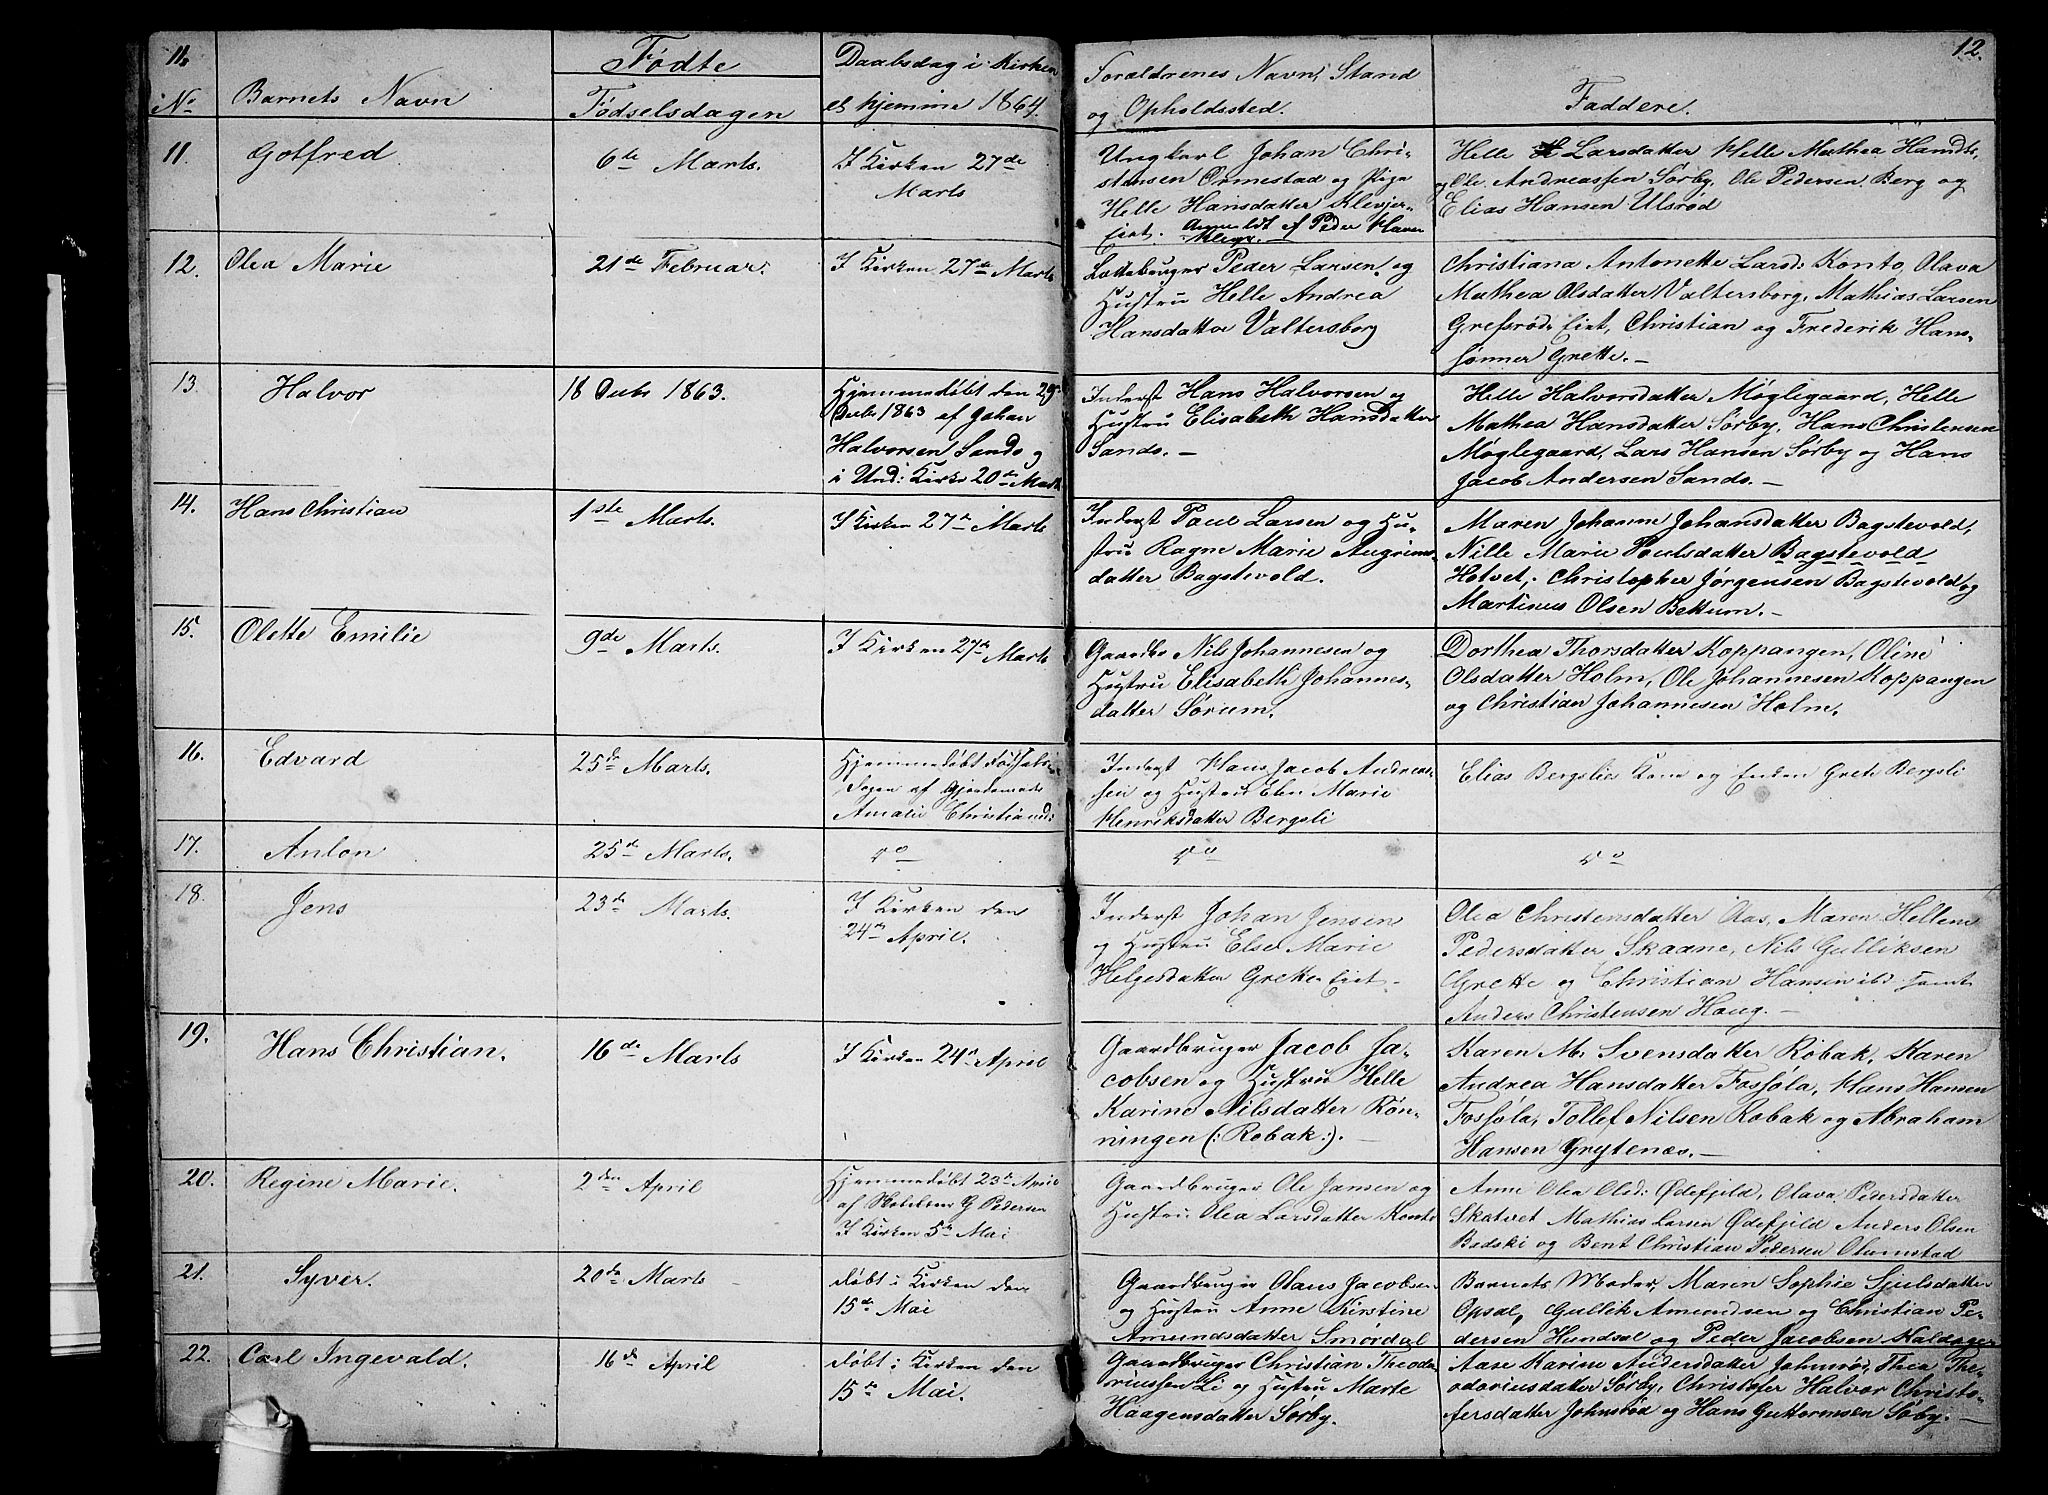 11.
12.
No
Barnets Navn
Fødte
Fødselsdagen
Daabsdag i Kirken
el hjemme 1864.
Forældrenes Navn, Stand
og Opholdssted.
Faddere.
11.
Gotfred
6te Marts.
I Kirken 27de
Marts
Ungkarl Johan Chri-
stensen Ormestad og Pige
Helle Hansdatter Klevjer-
Eiet. Anmeldt af Peder Klaver
Helle Larsdatter Helle Mathea Handtr,
og Ole Andreassen Sørby, Ole Pedersen Berg og
Elias Hansen Ulsrød
12.
Olea Marie
21de Februar.
I Kirken 27de Marts
Peder Larsen og
Hustru Helle Andrea
Hansdatter Valtersborg
Christiana Antonette Larsd: Konto, Olava
Mathea Olsdatter Valtersborg, Mathias Larsen
Grefsrød Eiet, Christian og Frederik Hans-
sønner Grette. -
13.
Halvor
18 Decbr 1863.
Hjemmedøbt den 29
Decbr 1863 af Johan
Halvorsen Sands og
i Und: Kirke 20de Marts
Inderst Hans Halvorsen og
Hustru Elisabeth Hansdatter
Sands. -
Helle Halvorsdatter Møglegaard, Helle
Mathea Hansdatter Sørby, Hans Christensen
Møglegaard, Lars Hansen Sørby og Hans
Jacob Andersen Sands. -
14.
Hans Christian
1ste Marts.
I Kirken 27de Marts
Inderst Paul Larsen og Hu-
stru Ragne Marie Augrims-
datter Bagstevold.
Maren Johanne Johansdatter Bagstevold,
Nille Marie Poulsdatter Bagstevold
Holvet, Christopher Jørgensen Bagstevold og
Martinus Olsen Bettum. -
15.
Olette Emilie
9de Marts.
I Kirken 27de Marts
Gaardbr Nils Johannesen og
Hustru Elisabeth Johannes-
datter Sørum.
Dorthea Thorsdatter Koppangen, Oline
Olsdatter Holm, Ole Johannesen Koppangen
og Christian Johannesen Holm.
16.
Edvard
25de Marts.
Hjemmedøbt Fødsels-
dagen af Gjordemoder
Amalie Christiansd:
Inderst Hans Jacob Andreas-
sen og Hustru Elen Marie
Henriksdatter Bergsli
Elias Bergslies Kone og Enken Grete Bergsli
17.
Anton
25de Marts.
do
do
do
18.
Jens
23de Marts.
I Kirken den
24de April.
Inderst Johan Jensen
og Hustru Else Marie
Helgesdatter Grette Eiet -
Olea Christensdatter Aas, Maren Hellene
Pedersdatter Skaane, Nils Gulliksen
Grette og Christian Hansen ibd samt
Anders Christensen Haug. -
19.
Hans Christian.
16de Marts
I Kirken 24de April
Gaardbruger Jacob Ja-
cobsen og Hustru Helle
Karine Nilsdatter Røn-
ningen (: Robak :). -
Karen M. Svensdatter Robak, Karen
Andrea Hansdatter Fosføla, Hans Hansen
Fosføla, Tollef Nilsen Robak og Abraham
Hansen Grytenæs. -
20.
Regine Marie.
2den April
Hjemmedøbt 23de April
af G Pedersen
I Kirken 5te Mai
Gaardbruger Ole Jansen og
Hustru Olea Larsdatter Konto
Anne Olea Olsd: Ødefjeld, Olava Pedersdatter
Skatvet Mathias Larsen Ødefjeld Anders Olsen
og Bent Christian Pedersen Olumstad
21.
Syver.
20de Marts
døbt i Kirken den
15de Mai
Gaardbruger Olaus Jacobsen
og Hustru Anne Kirstine
Amundsdatter Smørdal
Barnets Moder, Maren Sophie Sjulsdatter
Opsal, Gullik Amundsen og Christian Pe-
dersen Hundsal og Peder Jacobsen Haldager
22.
Carl Ingevald.
16de April
døbt i Kirken den
15de Mai.
Gaardbruger Christian Theodo-
riussen Li og Hustru Marte
Haagensdatter Sørby.
Aase Karine Andersdatter Johnsrød, Thea The-
odoriusdatter Sørby, Christofer Halvor Christo-
fersdatter Johnsrød og Hans Guttormsen Sørby. -